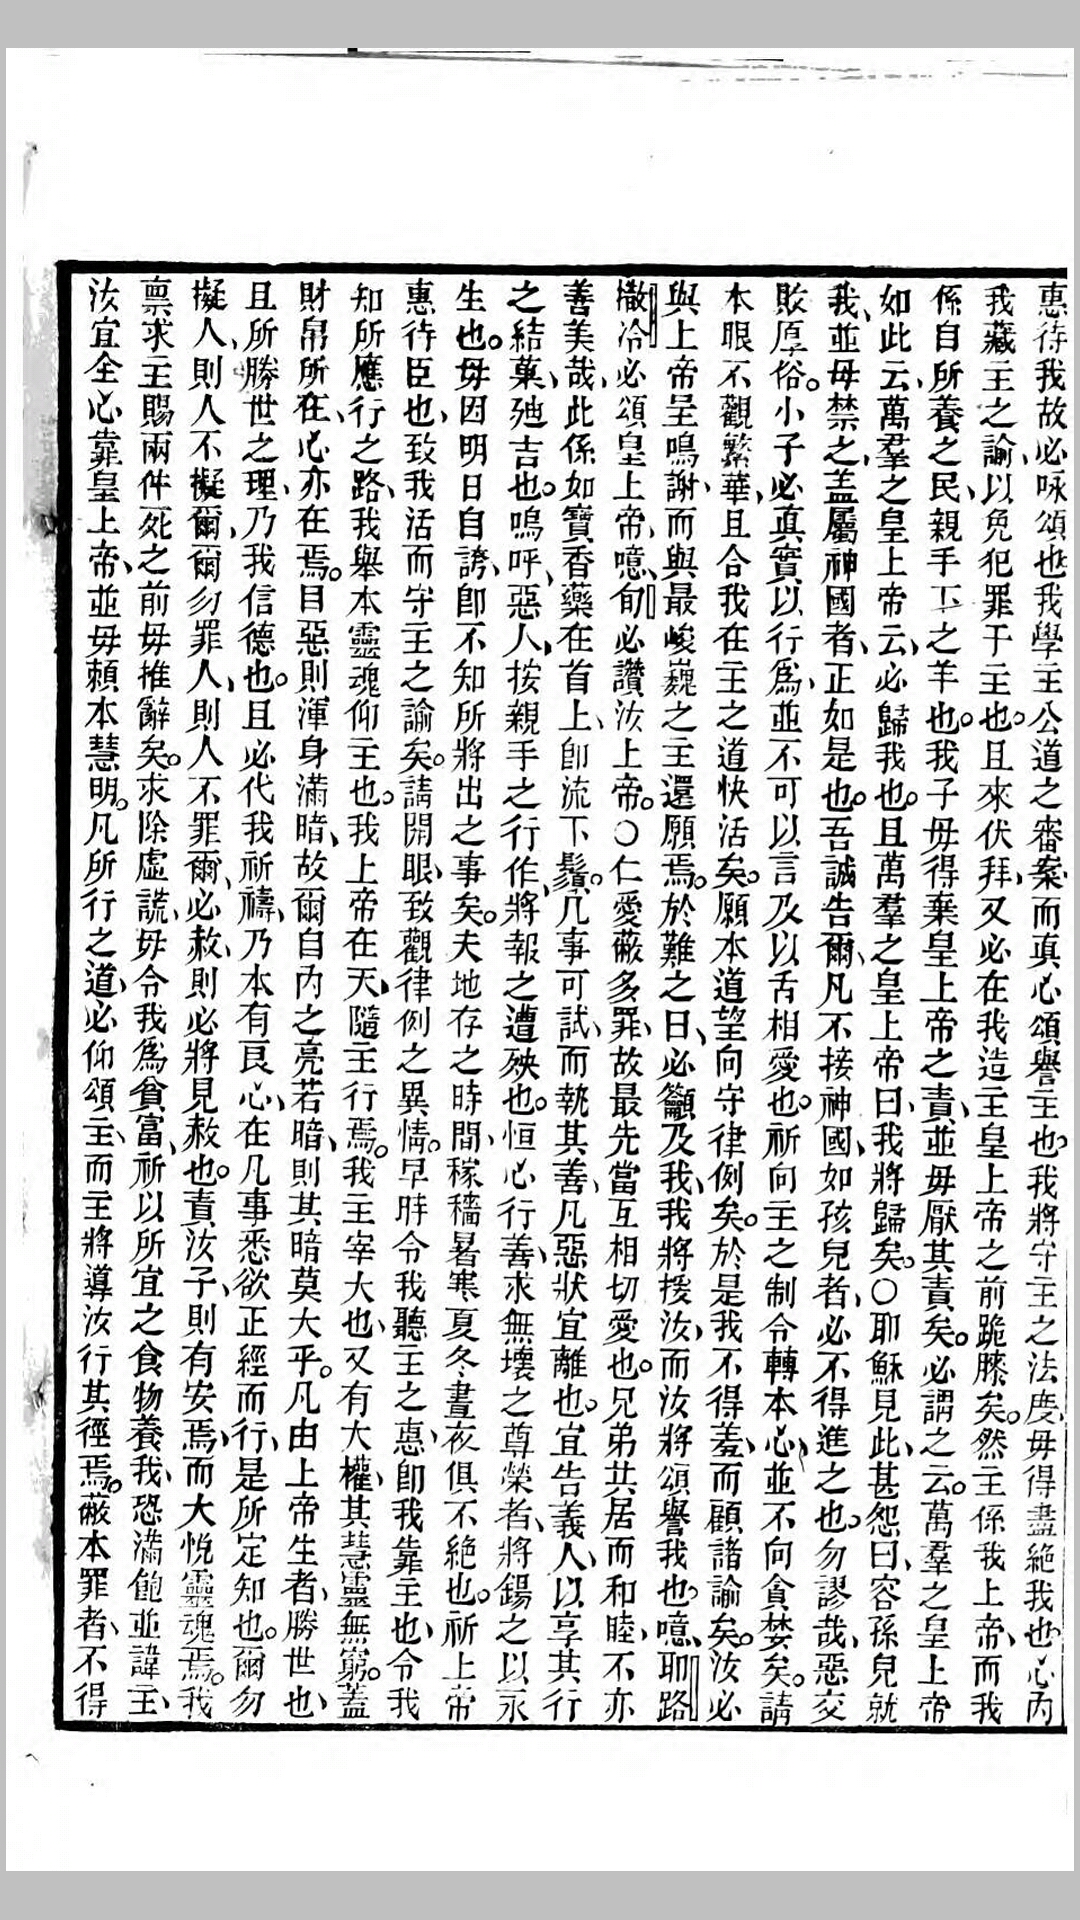 惠待我故必咏頌也我學主公道之審案而真心頌譽主也我將守主之法度毋得盡絕我也心內
我藏主之諭、以免犯罪于主也。且來伏拜、又必在我造主皇上帝之前跪膝矣。然主係我上帝、而我
係自所養之民、親手下之羊也。我子毋得棄皇上帝之責、並毋厭其責矣。必謂之云。萬羣之皇上帝
如此云、萬羣之皇上帝云、必歸我也。且萬羣之皇上帝曰、我將歸矣。○耶穌見此、甚怨曰、容孫兒就
我、並毋禁之、蓋屬神國者、正如是也。吾誠告爾、凡不接神國、如孩兒者、必不得進之也。勿謬哉、惡交
敗厚俗。小子必真實以行為、並不可以言及以舌相愛也。祈向主之制令轉本心、並不向貪婪矣。請
本眼不觀繁華、且合我在主之道快活矣。願本道望向守律例矣。於是我不得羞、而顧諸諭矣。汝必
與上帝呈鳴謝、而與最峻巍之主還願焉。於難之日、必籲及我、我將援汝、而汝將頌譽我也。噫、耶路
撒冷必頌皇上帝、噫、旬必讚汝上帝。○仁愛蔽多罪、故最先當互相切愛也。兄弟共居而和睦、不亦
善美哉、此係如寶香藥在首上、卽流下鬚。凡事可試、而執其善、凡惡狀宜離也。宜告義人、以享其行
之結菓、迆吉也。嗚呼、惡人、按親手之行作、將報之遭殃也。恒心行善、求無壞之尊榮者、將錫之以永
生也。毋因明日自誇、卽不知所將出之事矣。夫地存之時間、稼穡暑寒夏冬晝夜俱不絕也。祈上帝
惠待臣也、致我活而守主之諭矣。請開眼、致觀律例之異情。早時令我聽主之惠、卽我靠主也、令我
知所應行之路、我舉本靈魂仰主也。我上帝在天、隨主行焉。我主宰大也、又有大權、其慧靈無窮。蓋
財帛所在、心亦在焉。目惡則渾身滿暗、故爾自內之亮若暗、則其暗莫大乎。凡由上帝生者、勝世也、
且所勝世之理、乃我信德也。且必代我祈禱、乃本有良心、在凡事悉欲正經而行、是所定知也。爾勿
擬人、則人不擬爾、爾勿罪人、則人不罪爾、必赦、則必將見赦也。責汝子、則有安焉、而大悅靈魂焉。我
禀求主賜兩件、死之前毋推辭矣。求除虛謊、毋令我為貧富、祈以所宜之食物養我、恐滿飽並諱主、
汝宜全心靠皇上帝、並毋賴本慧明。凡所行之道、必仰頌主、而主將導汝行其徑焉。蔽本罪者、不得